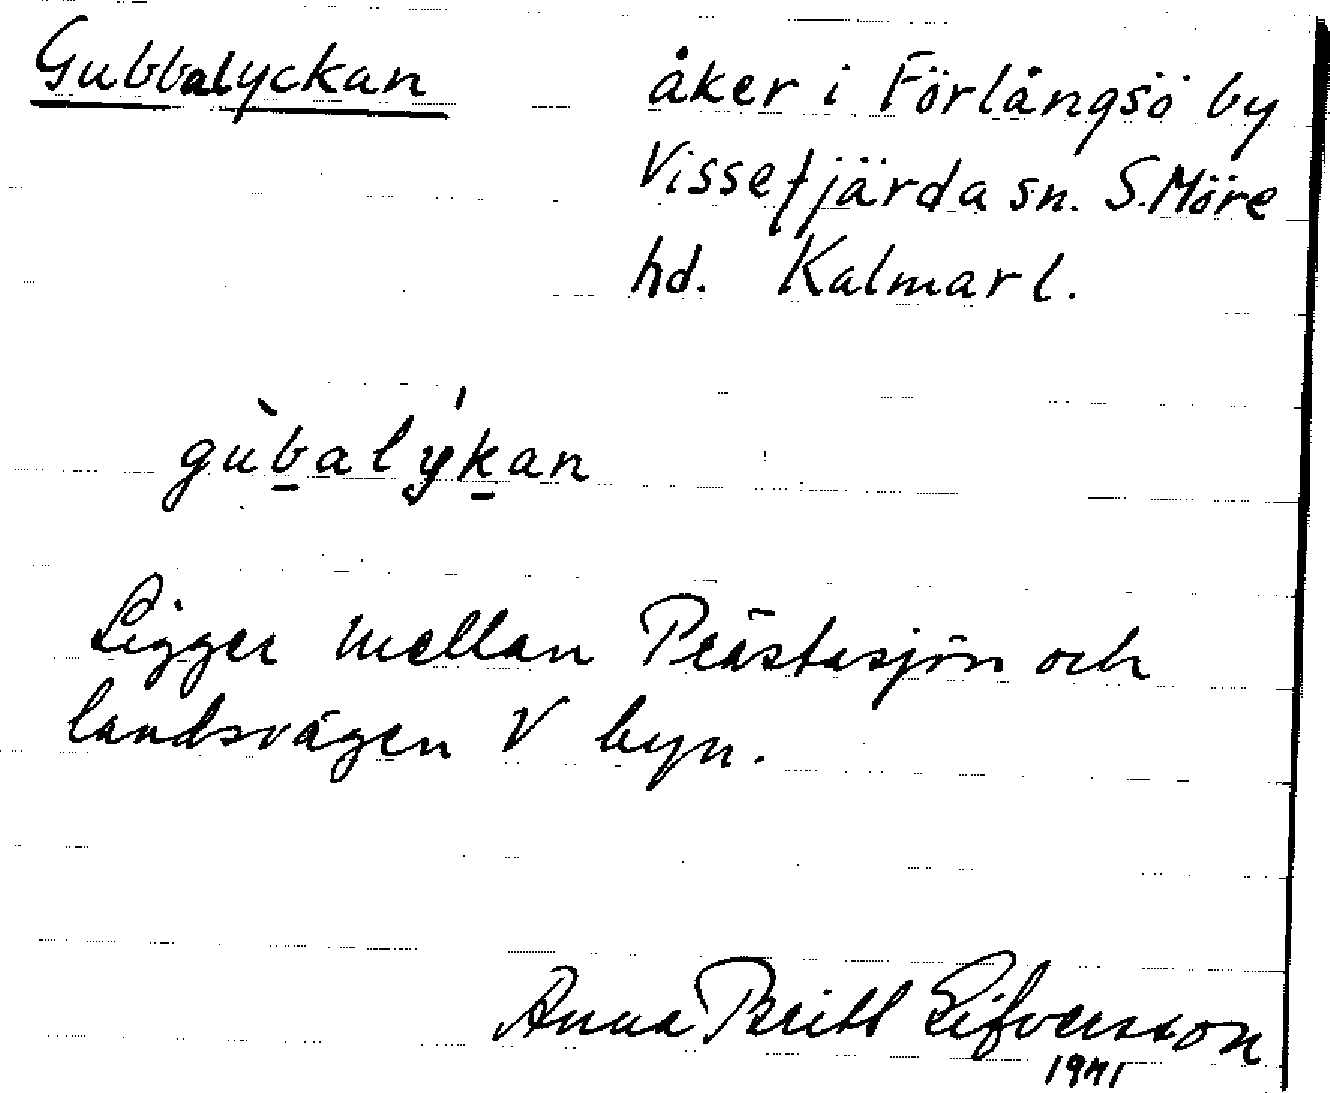 Gubbalyckan åker i Förlångsö by
Vissefjärda sn. S. Möre
hd. Kalmar l.
gùbalýkan
Ligger mellan Prästasjön och
landsvägen V byn.
Anna Britt Sifversson
1971